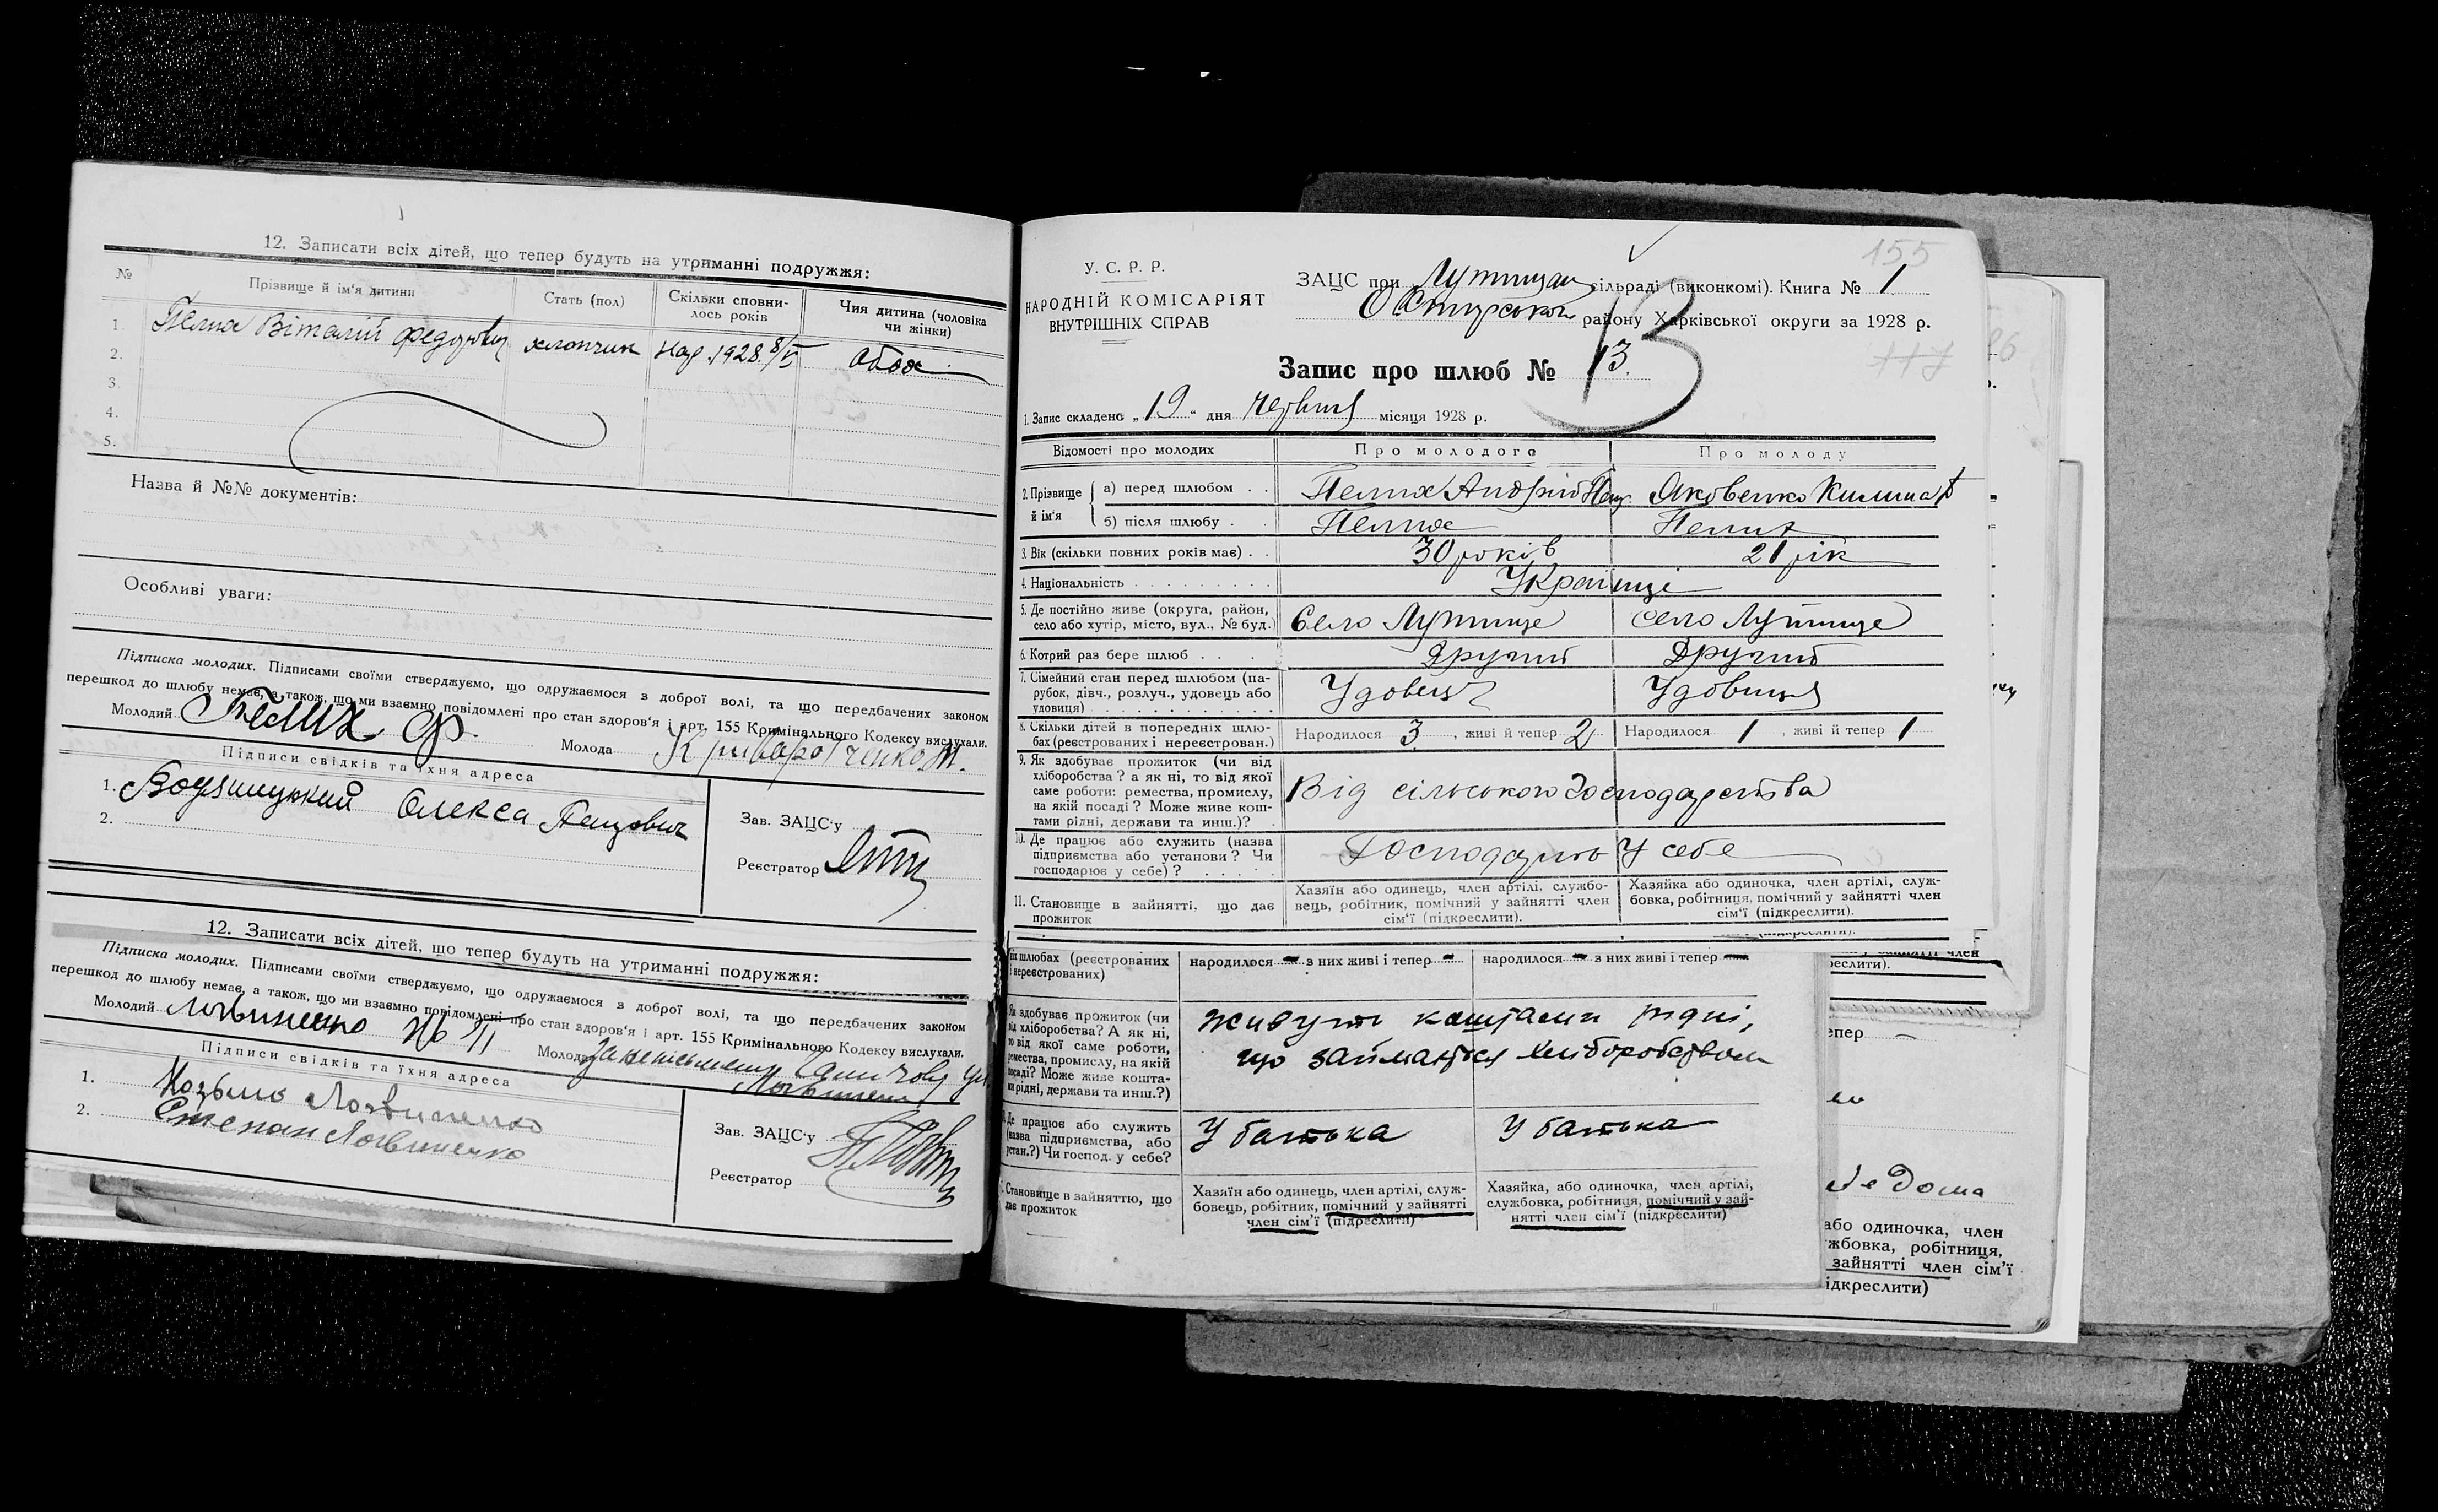 12. Записати всіх дітей, що тепер будуть на утриманні подружжя:
№ Прізвище й ім'я дитини Стать (пол) Скільки сповнилось років Чия дитина (чоловіка чи жінки)
1. Пелих Віталій Федорович хлопчик Нар. 1928 8/V обох
2.
3
4.
5.
Назва й №№ документів:
Особливі уваги:
Підписка молодих. Підписами своїми стверджуємо, що одружаємося з доброї волі, та що передбачених законом
перешкод до шлюбу немає, а також, що ми взаємно повідомлені про стан здоров'я і арт. 155 Кримінального Кодексу вислухали.
Молодий Пелих Ф. Молода
Підписи свідків та їхня адреса
1. Олекса
2.
Зав. ЗАЦС'у
Реєстратор
12. Записати всіх дітей, що тепер будуть на утриманні подружжя:
Підписка молодих. Підписами своїми стверджуємо, що одружаємося з доброї волі, та що передбачених законом
перешкод до шлюбу немає, а також, що ми взаємно повідомлені про стан здоров'я і арт. 155 Кримінального Кодексу вислухали.
Молодий Логвиненко Молода
Підписи свідків та їхня адреса
1. Козьма Логвиненко
2. Степан Логвиненко
Зав. ЗАЦС'у
Реєстратор
155
У. С. Р. Р.
НАРОДНІЙ КОМІСАРІЯТ
ВНУТРІШНІХ СПРАВ
ЗАЦС при Лутищан сільраді (виконкомі). Книга № 1
району Харківської округи за 1928 р.
117
Запис про шлюб № 13.
13
1. Запис складено „19“ дня червня місяця 1928 р.
Відомості про молодих Про молодого Про молоду
2. Прізвище й ім'я
а) перед шлюбом . . Пелих Андрій Яковенко Килина
б) після шлюбу . Пелих Пелих
3. Вік (скільки повних років має) . . 30 років 21 рік
4. Національність Українці
5. Де постійно живе (округа, район, село або хутір, місто, вул., № буд.) Село Лутище село Лутище
6. Котрий раз бере шлюб . . Другий Другий
7. Сімейний стан перед шлюбом (парубок, дівч., розлуч., удовець або удовиця) Удовець Удовиця
8. Скільки дітей в попередніх шлюбах (реєстрованих і нереєстрован.) Народилося 3, живі й тепер 2 Народилося 1, живі й тепер 1
9. Як здобуває прожиток (чи від хліборобства? а як ні, то від якої саме роботи: ремества, промислу, на якій посаді? Може живе коштами рідні, держави та инш.)? Від сільського господарства
10. Де працює або служить (назва підприємства або установи? Чи господарює у себе)? Господарють у себе
11. Становище в зайнятті, що дає прожиток Хазяїн або одинець, член артілі, службовець, робітник, помічний у зайнятті член сім'ї (підкреслити). Хазяйка або одиночка, член артілі, службовка, робітниця, помічний у зайнятті член сім'ї (підкреслити).
их шлюбах (реєстрованих і нереєстрованих) народилося - з них живі і тепер - народилося - з них живі і тепер -
Як здобуває прожиток (чи від хліборобства? А як ні, то від якої саме роботи, ремества, промислу, на якій посаді? Може живе коштами рідні, держави та инш.?) Живуть коштами рідні,
що займаються хліборобством
Де працює або служить (назва підприємства, або устан.?) Чи господ. у себе? У батька У батька
Становище в зайняттю, що дає прожиток Хазяїн або одинець, член артілі, службовець, робітник, помічний у зайнятті член сім'ї (підреслити) Хазяйка, або одиночка, член артілі, службовка, робітниця, помічний у зайнятті член сім'ї (підкреслити)
еслити).
епер
дома
або одиночка, член
жбовка, робітниця,
зайнятті член сім'ї
ідкреслити)